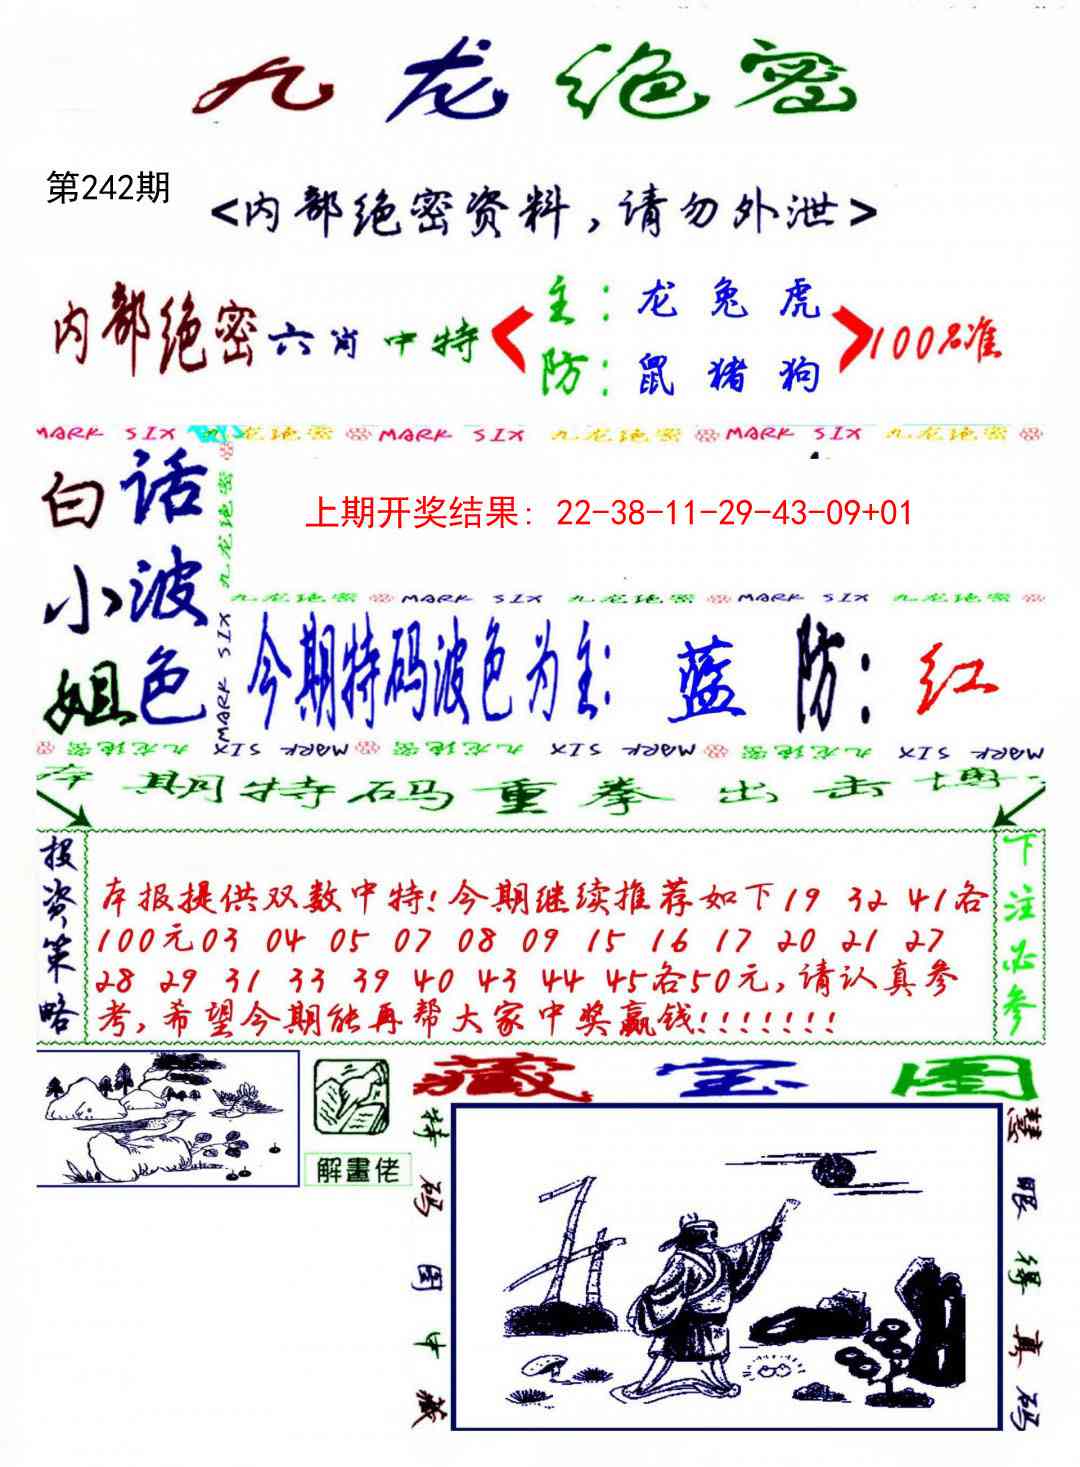 九龙绝密
第242期
<内部绝密资料，请勿外泄>
内部绝密六肖中特
主：龙 兔 虎
防：鼠 猪 狗
100%准
MARK SIX 九龙绝密 MARK SIX 九龙绝密 MARK SIX 九龙绝密
白小姐
话波色
九龙绝密
MARK SIX
上期开奖结果: 22-38-11-29-43-09+01
九龙绝密 MARK SIX 九龙绝密 MARK SIX 九龙绝密
今期特码波色为主：蓝 防：红
九龙绝密 MARK SIX 九龙绝密 MARK SIX 九龙绝密 MARK SIX
本期特码重拳出击博
投资策略
本报提供双数中特!今期继续推荐如下19 32 41各
100元03 04 05 07 08 09 15 16 17 20 21 27
28 29 31 33 39 40 43 44 45各50元,请认真参
考,希望今期能再帮大家中奖赢钱!!!!!!!
下注必参
解畫佬
藏宝图
特码图中藏
慧眼得真码